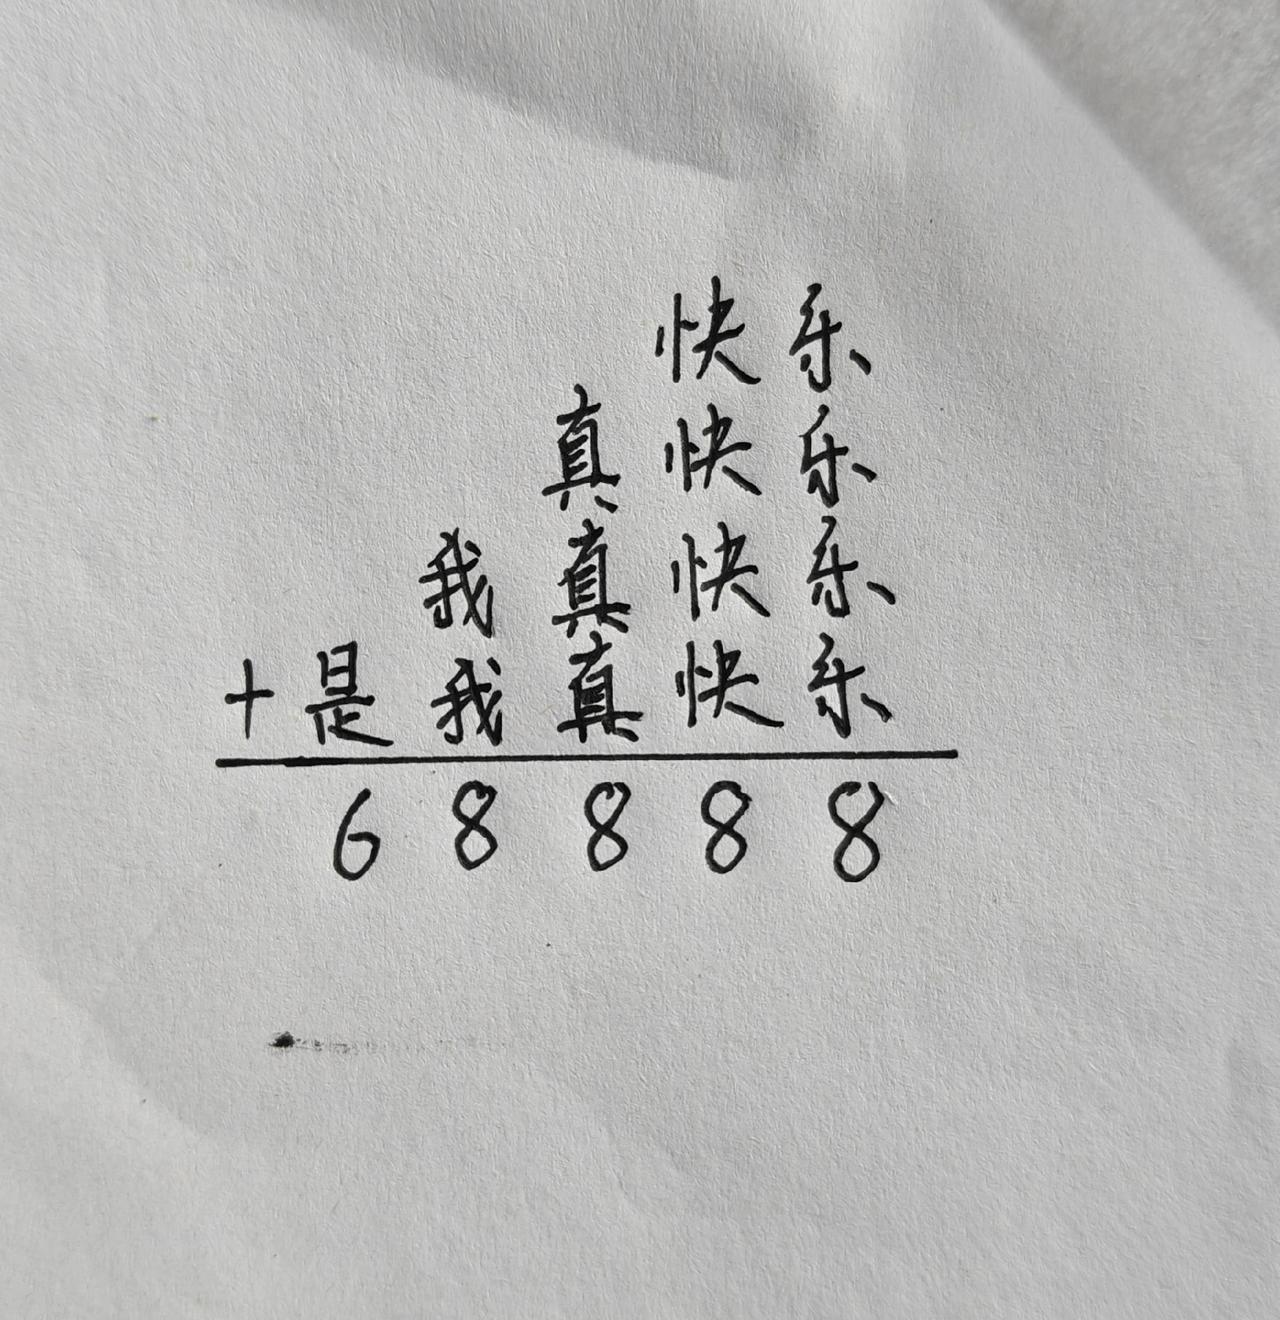 快乐
真快乐
我真快乐
+是我真快乐
68888